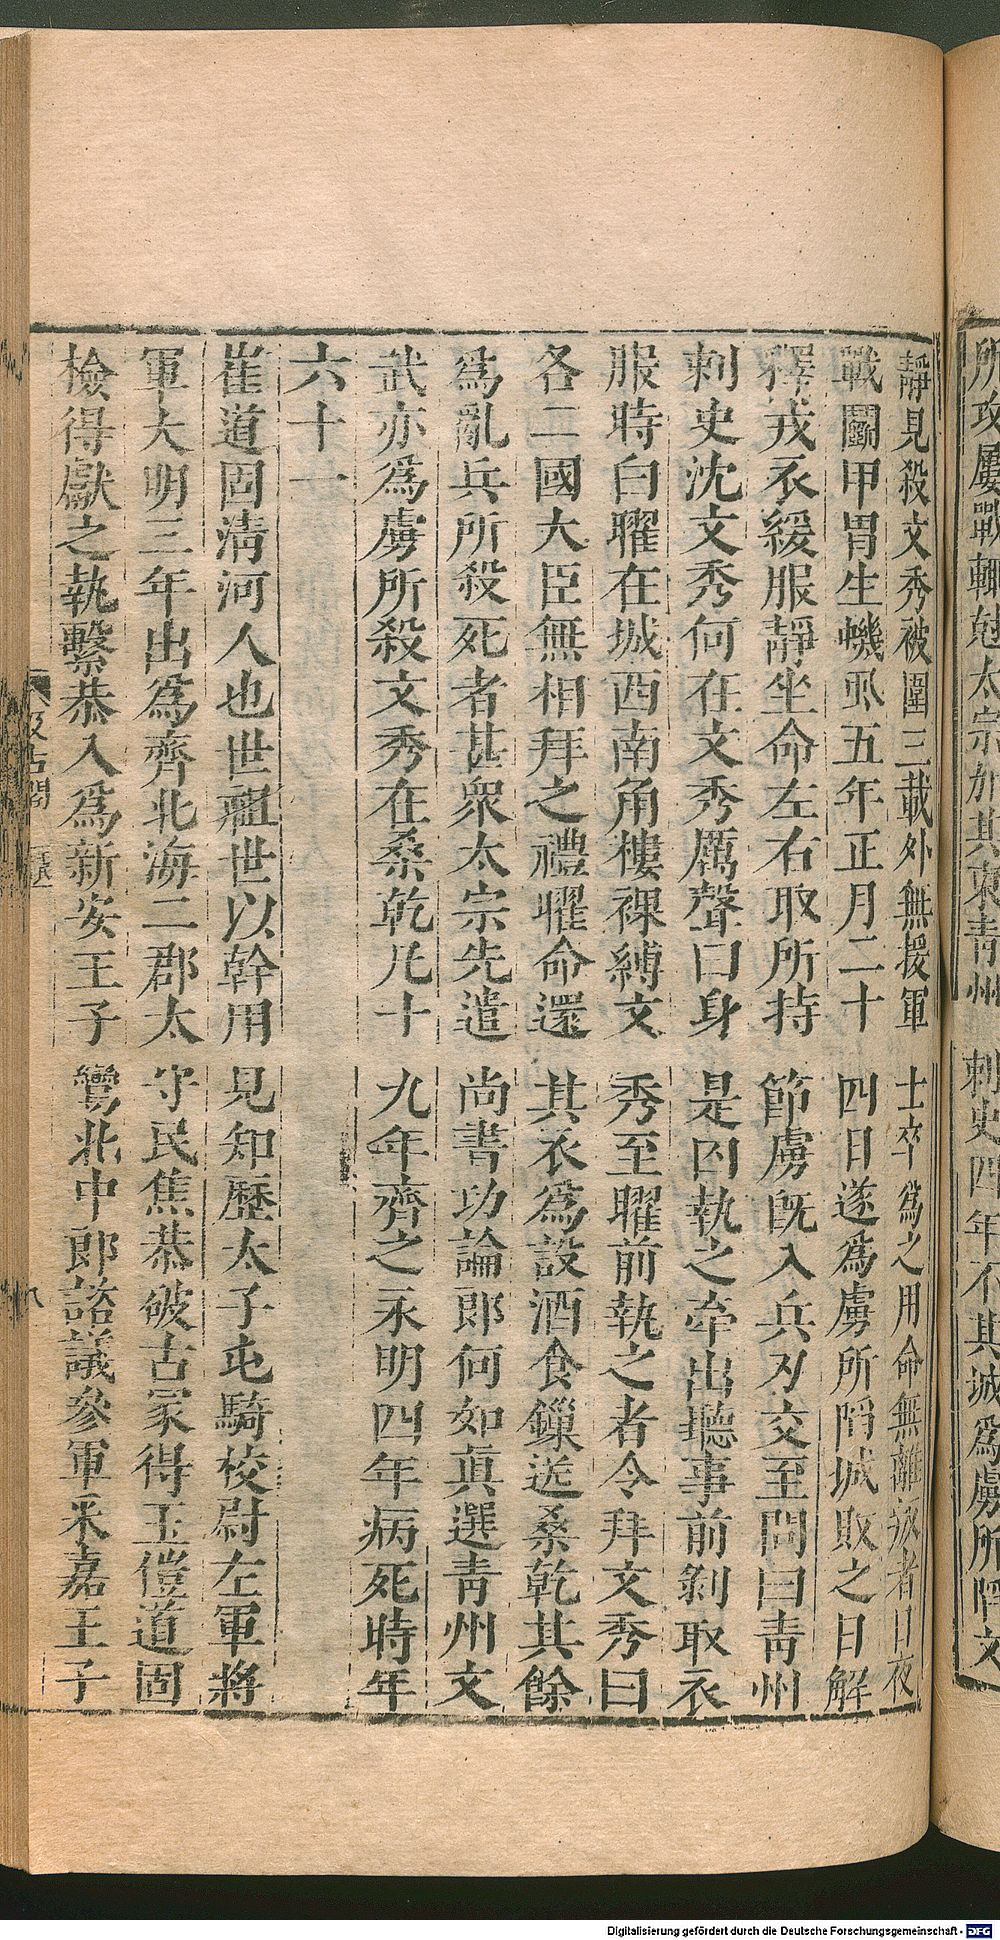 所攻屢戰輒剋太宗加其東青州刺史四年不其城爲虜所陷文
靜見殺文秀被圍三載外無援軍士卒爲之用命無離叛者日夜
戰鬭甲冑生蟣虱五年正月二十四日遂爲虜所陷城敗之日解
釋戎衣緩服靜坐命左右取所持節虜旣入兵刃交至問曰青州
刺史沈文秀何在文秀厲聲曰身是囚執之牽出聽事前剝取衣
服時白曜在城西南角樓裸縛文秀至曜前執之者令拜文秀曰
各二國大臣無相拜之禮曜命還其衣爲設酒食鏁送桑乾其餘
爲亂兵所殺死者甚衆太宗先遣尚書功論郎何如眞選青州文
武亦爲虜所殺文秀在桑乾凡十九年齊之永明四年病死時年
六十一
崔道固清河人也世祖世以幹用見知歷太子屯騎校尉左軍將
軍大明三年出爲齊北海二郡太守民焦恭破古冢得玉鎧道固
檢得獻之執繫恭入爲新安王子鸞北中郎諮議參軍永嘉王子
汲古閣
八
Digitalisierung gefördert durch die Deutsche Forschungsgemeinschaft - DFG